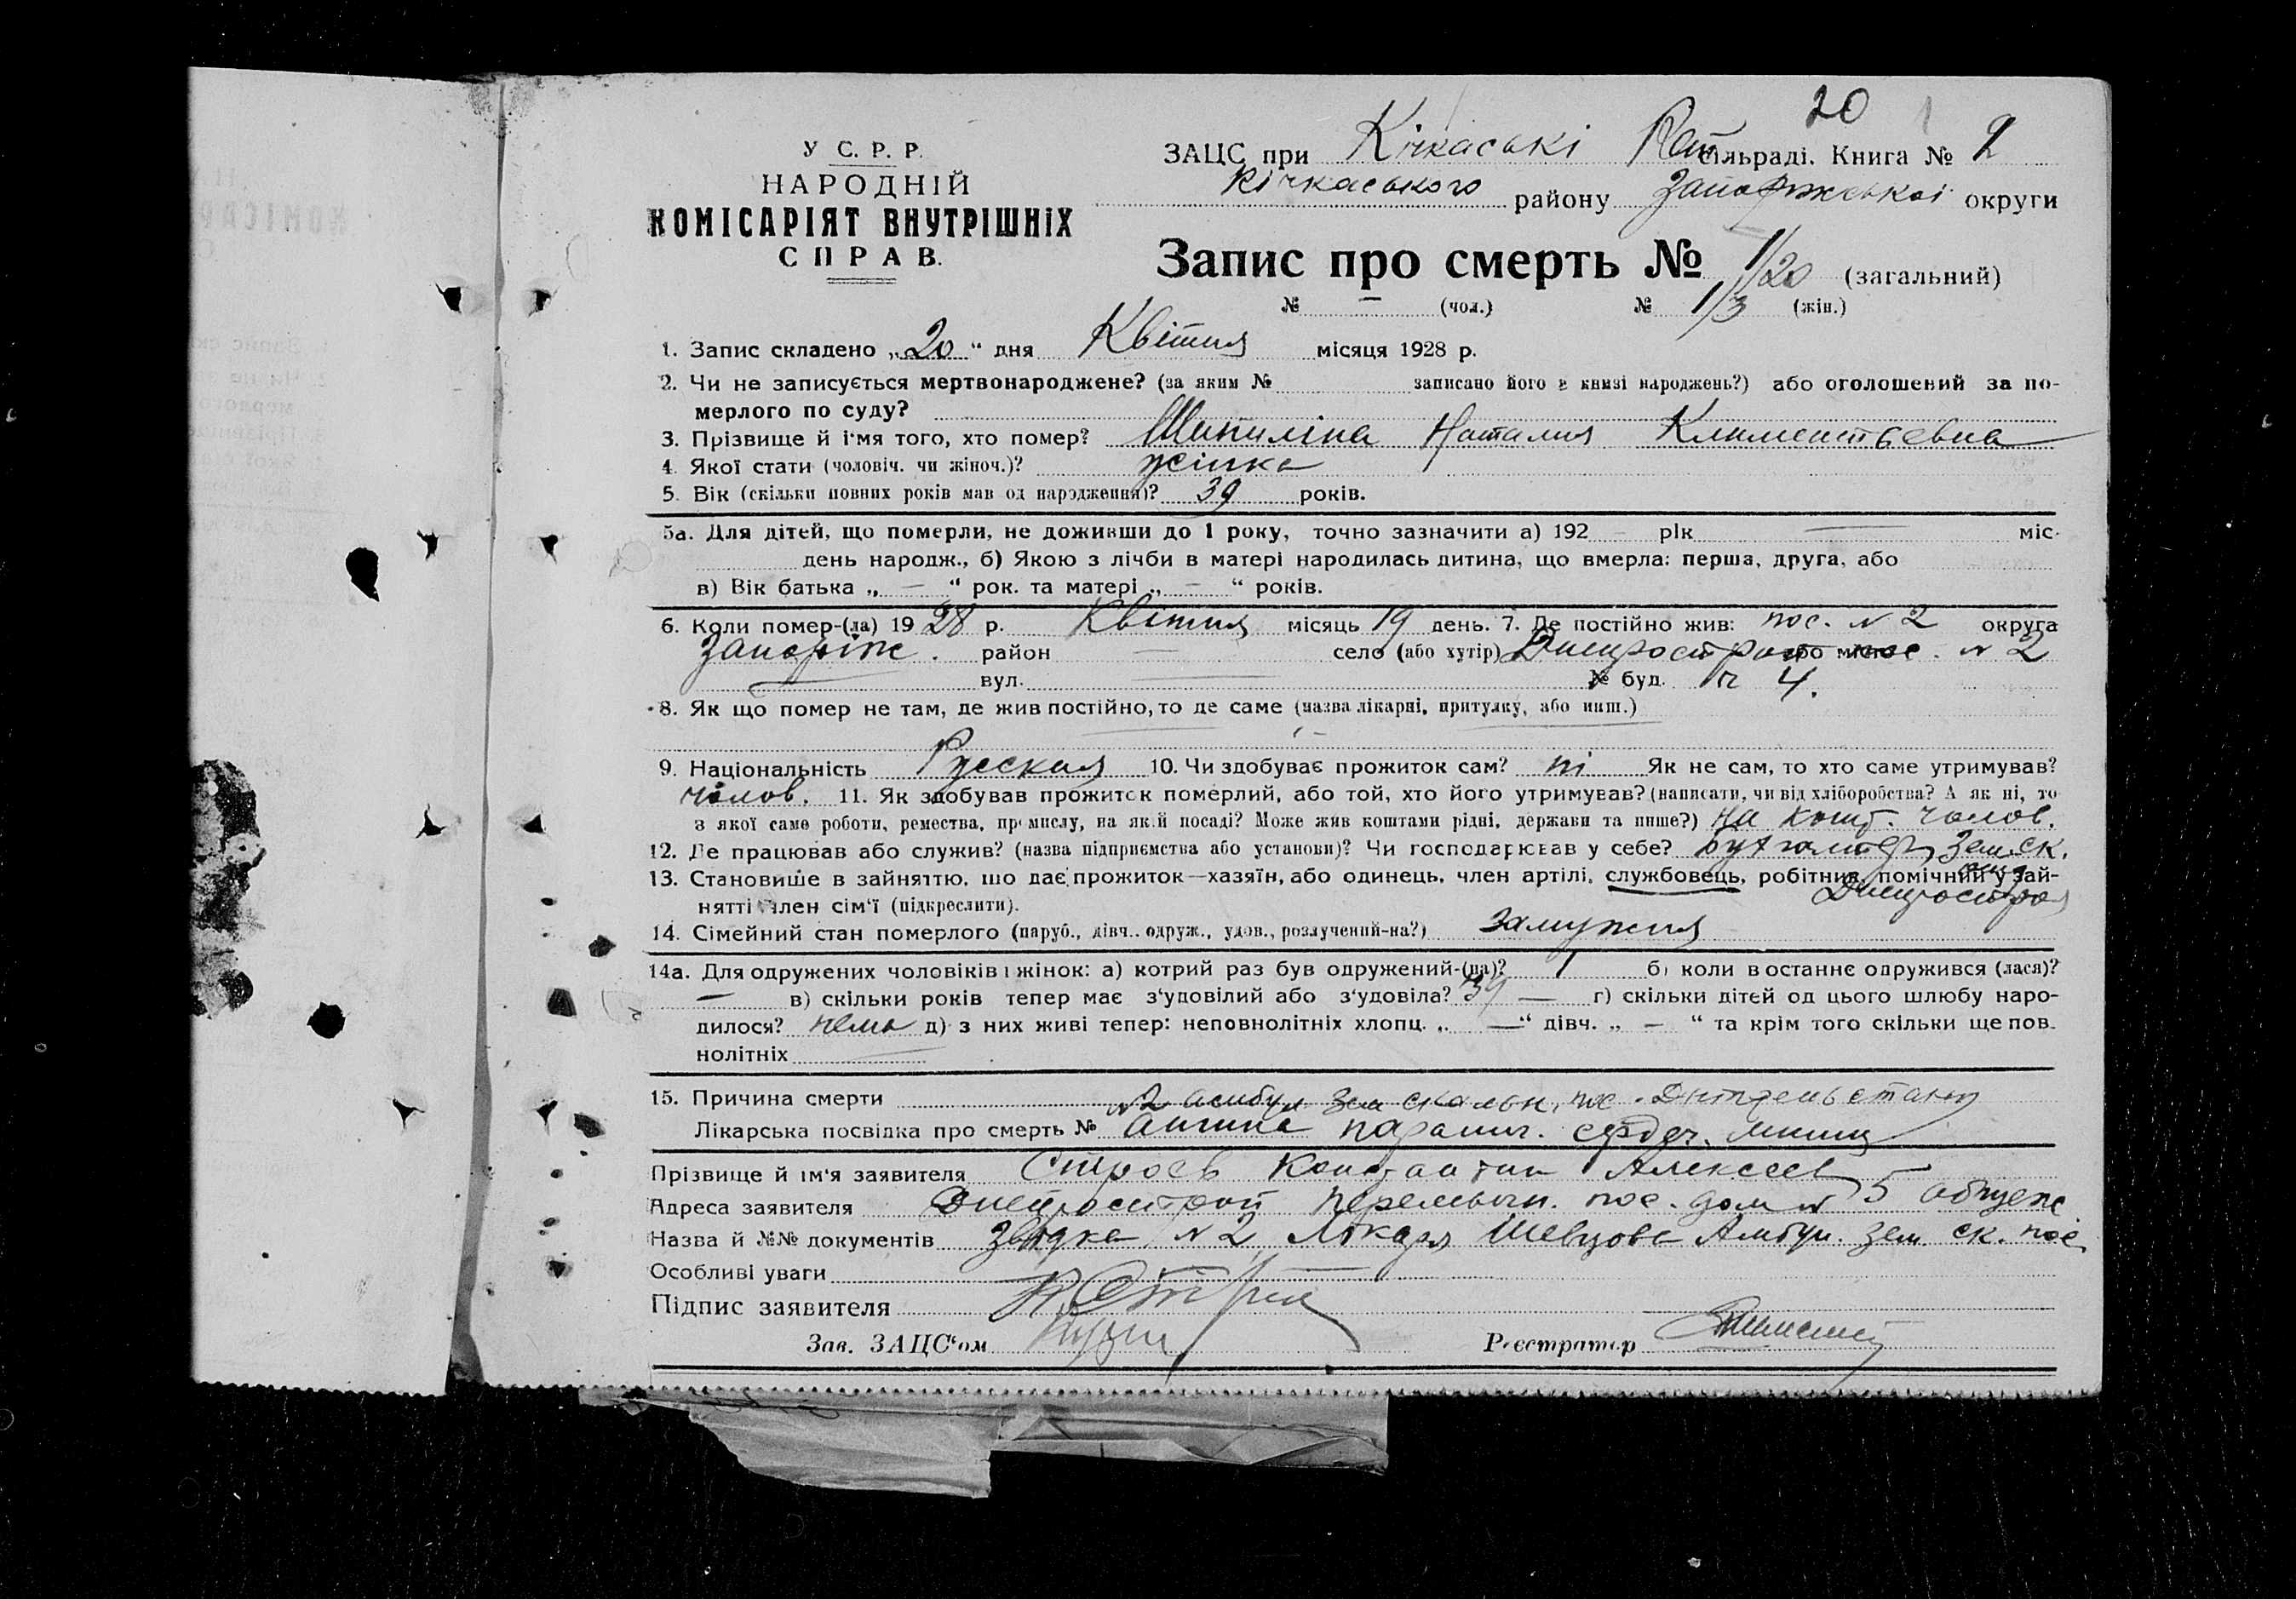 20
У С. Р. Р.
НАРОДНІЙ
КОМІСАРІЯТ ВНУТРІШНІХ
СПРАВ.
ЗАЦС при Кічкаські Рай сільраді. Книга № 2
Кічкаського району Запоріжської округи
Запис про смерть № 1/20 (загальний)
№ — (чол.) № 1/3 (жін.)
1. Запис складено „20“ дня Квітня місяця 1928 р.
2. Чи не записується мертвонароджене? (за яким № записано його в книзі народжень?) або оголошений за по-
мерлого по суду?
3. Прізвище й ім'я того, хто помер? Шипиліна Наталия Климентьевна
4. Якої стати (чоловіч. чи жіноч.)? жінка
5. Вік (скільки повних років мав од народження)? 39 років.
5а. Для дітей, що померли, не доживши до 1 року, точно зазначити а) 192 — рік — міс.
день народж., б) Якою з лічби в матері народилась дитина, що вмерла: перша, друга, або
в) Вік батька „ — “ рок. та матері „ — “ років.
6. Коли помер-(ла) 1928 р. Квітня місяць 19 день. 7. Де постійно жив: пос. № 2 округа
Запоріж. район — село (або хутір) Днепрострой або місто пос. № 2
вул. — № буд. 4.
8. Як що помер не там, де жив постійно, то де саме (назва лікарні, притулку, або инш.)
9. Національність Русская 10. Чи здобуває прожиток сам? ні Як не сам, то хто саме утримував?
чолов. 11. Як здобував прожиток померлий, або той, хто його утримував? (написати, чи від хліборобства? А як ні, то
з якої саме роботи, ремества, промислу, на якій посаді? Може жив коштами рідні, держави та инше?) На кошт. чолов.
12. Де працював або служив? (назва підприємства або установи)? Чи господарював у себе? бухгалтер Зем. ск.
13. Становище в зайняттю, що дає прожиток—хазяїн, або одинець, член артілі, службовець, робітник, помічний у зай-
нятті член сім'ї (підкреслити). Днепростроя
14. Сімейний стан померлого (паруб., дівч., одруж., удов., розлучений-на?) замужня
14а. Для одружених чоловіків і жінок: а) котрий раз був одружений-(на)? 1 б) коли востаннє одружився (лася)?
— в) скільки років тепер має з'удовілий або з'удовіла? 39 — г) скільки дітей од цього шлюбу наро-
дилося? нема д) з них живі тепер: неповнолітніх хлопц. „ — “ дівч. „ — “ та крім того скільки ще пов-
нолітніх
15. Причина смерти № 2 амбул. зем скальн. пос.
Лікарська посвідка про смерть № Ангина паралич. сердеч. мышц
Прізвище й ім'я заявителя Строев Константин Алексеев
Адреса заявителя Днепрострой пос. дом № 5
Назва й №№ документів Звідка № 2 Лікаря Шевцова Амбул. зем. ск. пос.
Особливі уваги
Підпис заявителя
Зав. ЗАЦС'ом Реєстратор